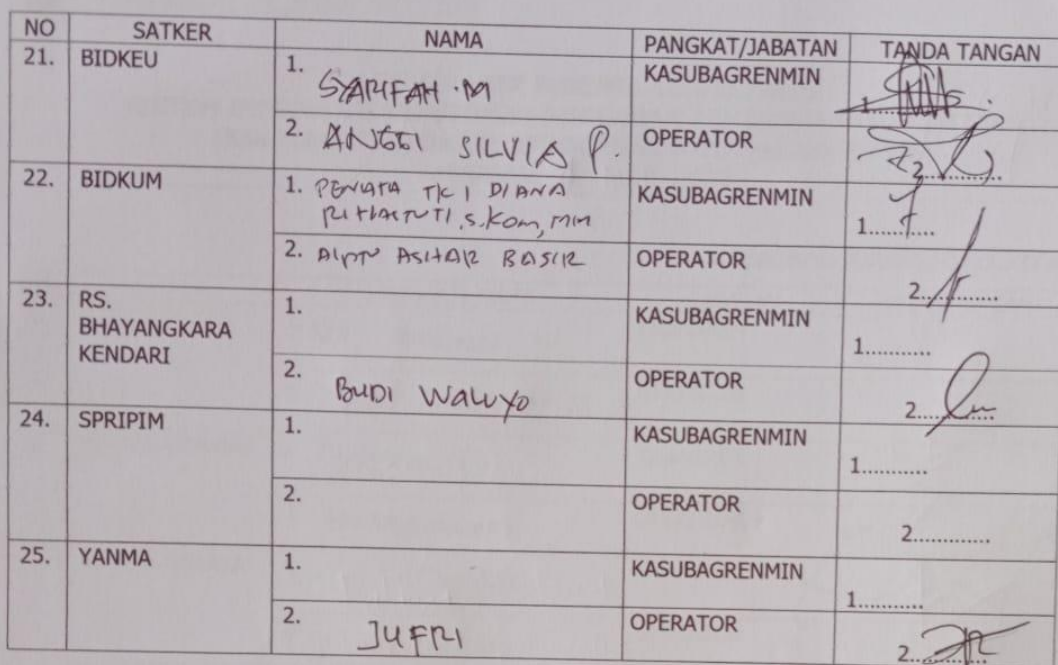 NO SATKER NAMA PANGKAT/JABATAN TANDA TANGAN
21. BIDKEU 1. SYARIFAH .M KASUBAGRENMIN 1...........
2. ANGGI SILVIA P. OPERATOR 2............
22. BIDKUM 1. PENATA TK I DIANA KASUBAGRENMIN 1...........
S.Kom, MM
2. AIPTU ASHAR BASIR OPERATOR 2............
23. RS. 1. KASUBAGRENMIN 1...........
BHAYANGKARA
KENDARI 2. BUDI WALUYO OPERATOR 2............
24. SPRIPIM 1. KASUBAGRENMIN 1...........
2. OPERATOR 2.............
25. YANMA 1. KASUBAGRENMIN 1...........
2. JUFRI OPERATOR 2............